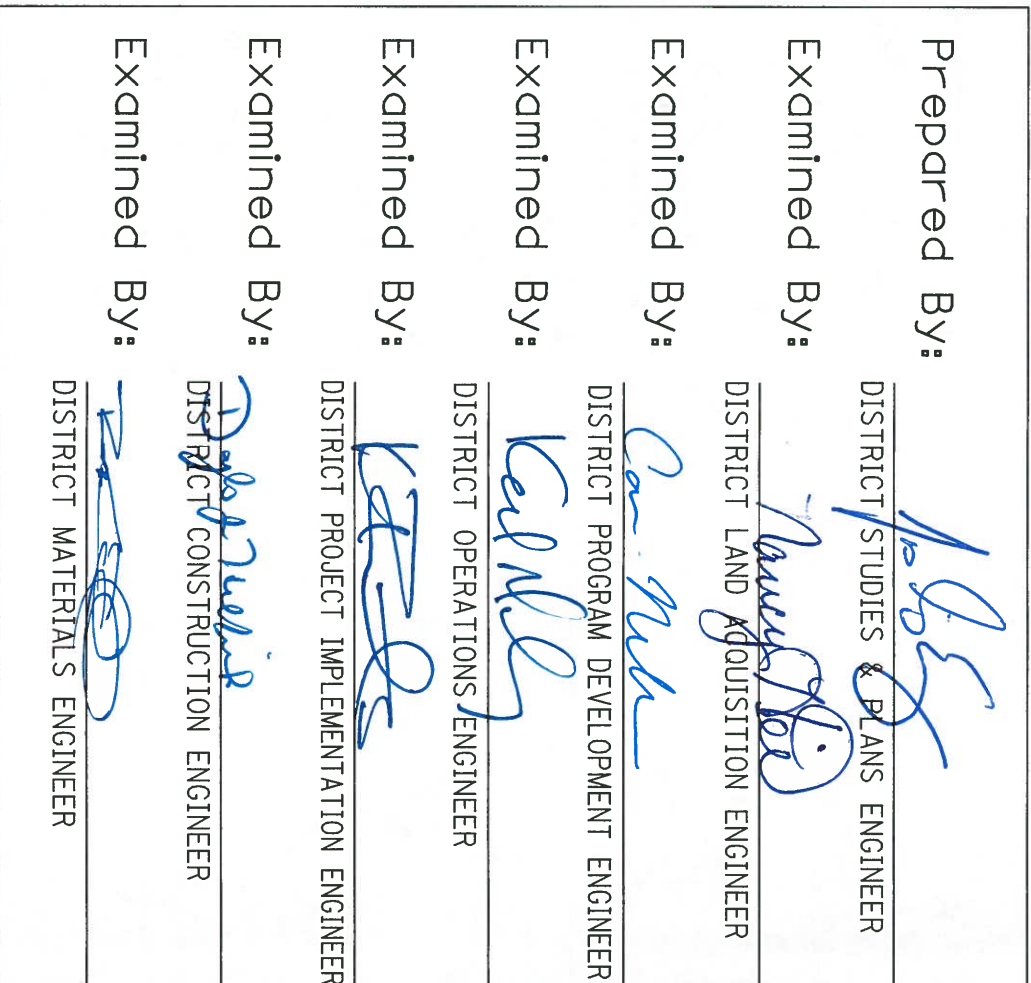 Prepared By:
DISTRICT STUDIES & PLANS ENGINEER
Examined By:
DISTRICT LAND ACQUISITION ENGINEER
Examined By:
DISTRICT PROGRAM DEVELOPMENT ENGINEER
Examined By:
DISTRICT OPERATIONS ENGINEER
Examined By:
DISTRICT PROJECT IMPLEMENTATION ENGINEER
Examined By:
DISTRICT CONSTRUCTION ENGINEER
Examined By:
DISTRICT MATERIALS ENGINEER